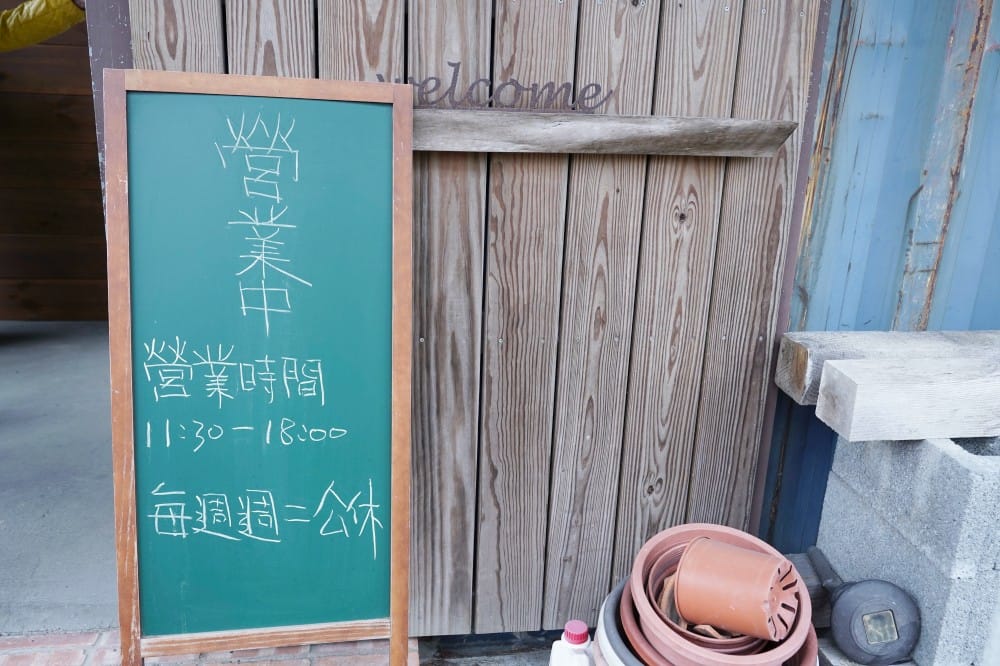 welcome
營業中
營業時間
11:30-18:00
每週週二公休